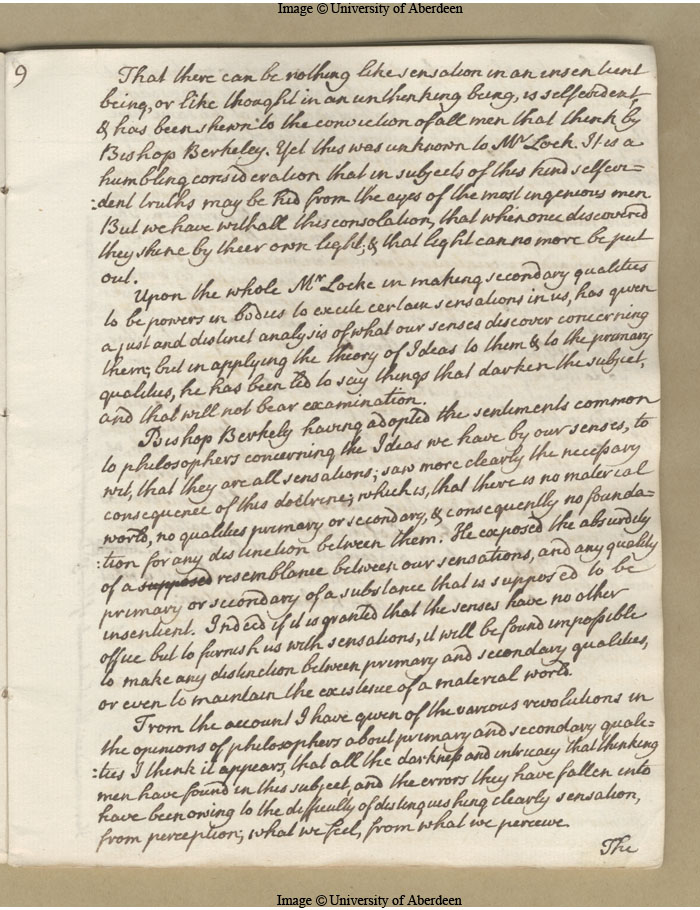 Image © University of Aberdeen
9
That there can be nothing like sensation in an insentient
being, or like thought in an unthinking being, is selfevident,
& has been shewn to the conviction of all men that think by
Bishop Berkeley. Yet this was unknown to Mr Lock. It is a
humbling consideration that in subjects of this kind selfevi=
:dent truths may be hid from the eyes of the most ingenious men
But we have withall this consolation, that when once discovered
they shine by their own light, & that light can no more be put
out.
Upon the whole Mr Locke in making secondary qualities
to be powers in bodies to excite certain sensations in us, has given
a just and distinct analysis of what our senses discover concerning
them; but in applying the theory of Ideas to them & to the primary
qualities, he has been led to say things that darken the subject,
and that will not bear examination.
Bishop Berkely having adopted the sentiments common
to philosophers concerning the Ideas we have by our senses, to
wit, that they are all sensations; saw more clearly the necessary
consequence of this doctrine; which is, that there is no material
world, no qualities primary or secondary, & consequently no founda=
:tion for any distinction between them. He exposed the absurdity
of a supposed resemblance between our sensations, and any quality
primary or secondary of a substance that is supposed to be
insentient. Indeed if it is granted that the senses have no other
office but to furnish us with sensations, it will be found impossible
to make any distinction between primary and secondary qualities,
or even to maintain the existence of a material world.
From the account I have given of the various revolutions in
the opinions of philosophers about primary and secondary quali=
:ties I think it appears, that all the darkness and intricacy that thinking
men have found in this subject, and the errors they have fallen into
have been owing to the difficulty of distinguishing clearly sensation,
from perception; what we feel, from what we perceive.
The
Image © University of Aberdeen